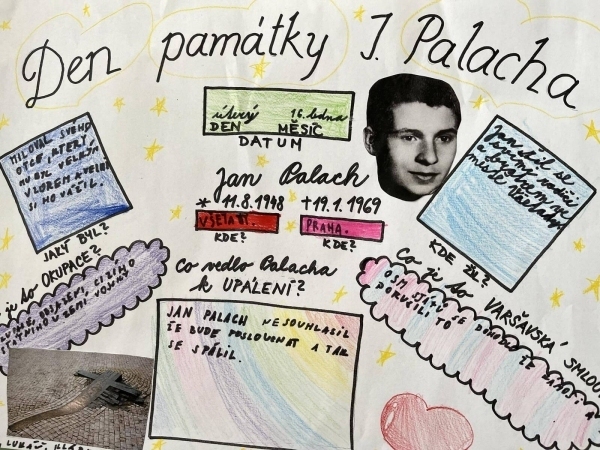 Den památky J. Palacha
úterý 16. ledna
DEN MĚSÍC
DATUM
Jan Palach
* 11.8.1948 † 19.1.1969
VŠETATY PRAHA
KDE? KDE?
MILOVAL SVÉHO
OTCE, KTERÝ
MU BYL VELKÝM
VZOREM A VELMI
SI HO VÁŽIL.
JAKÝ BYL?
Jan žil se
a bratrem ve
městě Všetaty
KDE ŽIL?
je to OKUPACE?
CIZÍHO
ÚZEMÍ VOJSKY
Co vedlo Palacha
k UPÁLENÍ?
JAN PALACH NESOUHLASIL
ŽE BUDE POSLOUCHAT A TAK
SE SPÁLIL.
Co je to VARŠAVSKÁ SMLOUVA
8 STÁTŮ SE
LUKÁŠ,